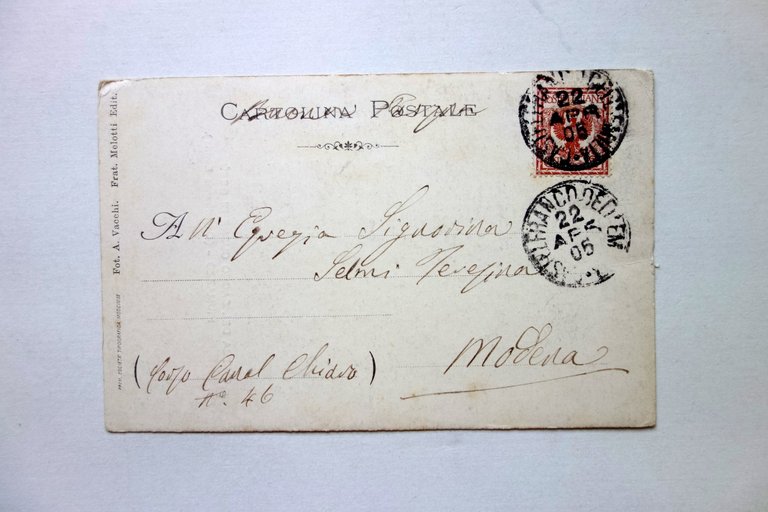 CARTOLINA POSTALE
22
APR
05
CASTELFRANCO DELL'EM
22
APR
05
All' Egregia Signorina
Selmi Teresina
Modena
(Corso Canal Chiaro)
n°. 46
Fot. A. Vacchi. Frat. Melotti Edit.